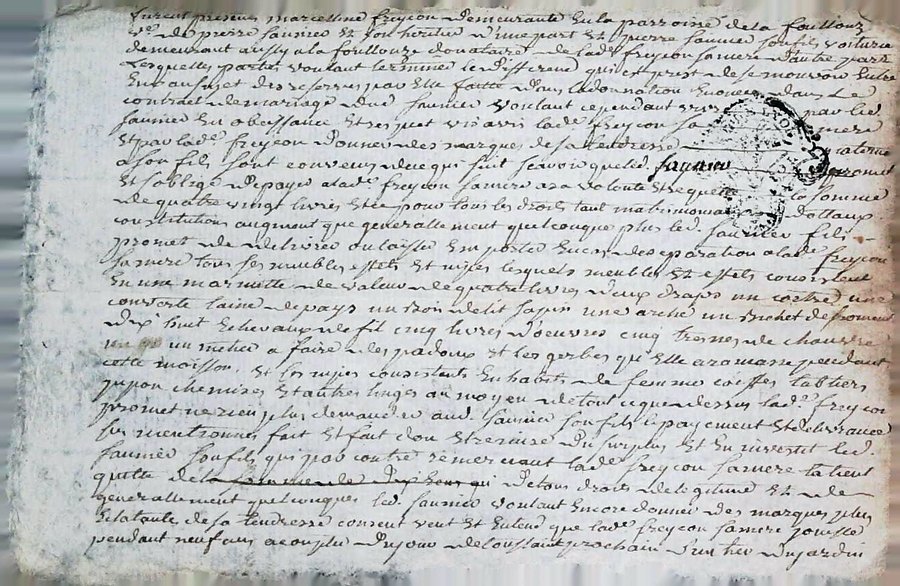 furent presens marcelline freyçon demeurante en la parroisse de la fouillouze
v.e de pierre Jaunier et son heritiere d'une part et pierre Jaunier son fils voiturier
demeurant aussy a la fouillouze donataire de lad.e freyçon sa mere d'autre part
Lesquelles parties voulant terminer le differend qui est prest de se mouvoir entre
Eux au sujet des reserves par elle faittes dans la donnation enoncée dans le
contract de mariage dud Jaunier voulant cependant par led.
Jaunier en obeissance et respect vis avis lad.e freyçon sa mere
Et par lad.e freyçon donner des marques de sa tendresse maternelle
a son fils sont convenus de ce qui suit scavoir que led. Jaunier promet
Et s'oblige de payer a lad.e freyçon sa mere a sa volonté et requette la somme
de quatre vingt livres et ce pour tous les droits tant matrimoniaux dottaux
constitution augment que generallement quelconque plus led. Jaunier fils
promet de delivrer ou laisser emporter en cas de separation a lad.e freyçon
sa mere tous ses meubles effets et nipes lesquels meubles et effets consistent
En une marmitte de valeur de quatre livres deux draps un coetre une
couverte laine de pays un bois de lit sapin une arche un bichet de froment
dix huit echevaux de fil cinq livres d'oeuvres cinq tresnes de chanvre
un metier a faire des padoux et les gerbes qu'elle a ramassé pendant
cette moisson, et les nipes consistent en habits de femme coeffes tabliers
jupon chemises et autres linges au moyen de tout ce que dessus lad.e freyçon
promet ne rien plus demander aud. Jaunier son fils le payement et delivrance
sus mentionnés fait et fait don et remise du surplus et en investit led.
Jaunier son fils qui par contre remerciant lad.e freyçon sa mere la tient
quitte de la somme de dix livres qui de tous droits de legitime et de
generallement quelconques led Jaunier voulant encore donner des marques plus
eclatantes de sa tendresse consent veut et entend que lad.e freyçon sa mere jouisse
pendant neuf ans a compter du jour de toussaint prochain d'un tier du jardin